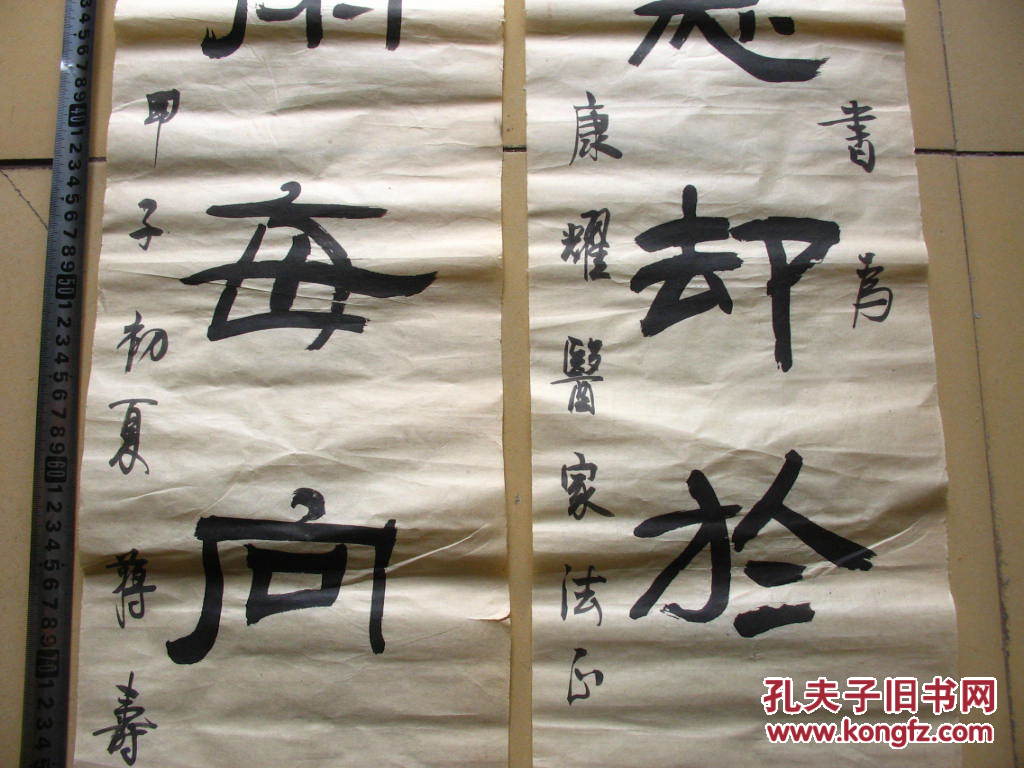 却於
書為
康耀醫家法正
每向
甲子初夏蔣壽
孔夫子旧书网
www.kongfz.com